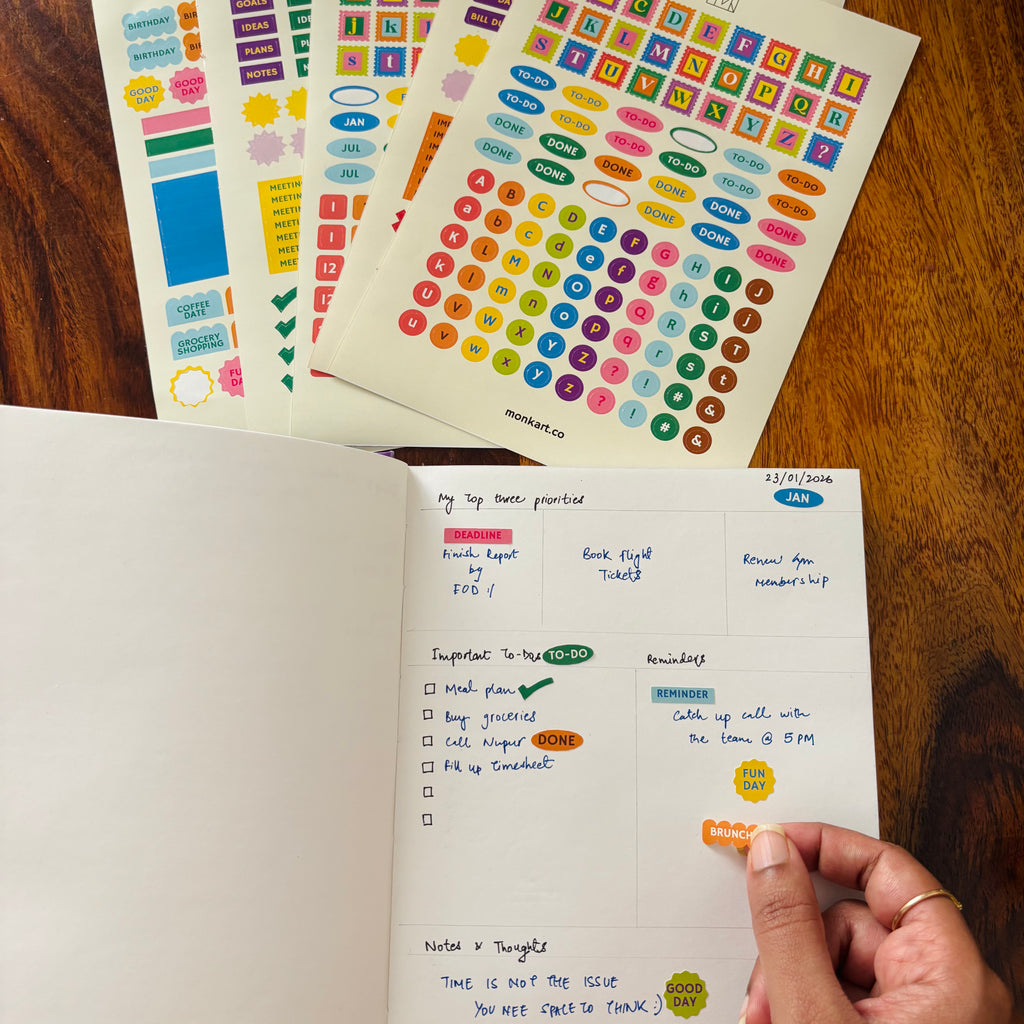 BIRTHDAY
BIRTHDAY
GOOD DAY
GOOD
COFFEE DATE
GROCERY SHOPPING
GOALS
IDEAS
PLANS
NOTES
MEETING
MEETING
MEETIN
MEETI
MEETI
MEET
MEE
j k
s t
JAN
JUL
JUL
1
1
12
12
BILL DU
C D E F G H I
J K L M N O P Q R
S T U V W X Y Z ?
TO-DO TO-DO TO-DO TO-DO TO-DO
TO-DO TO-DO TO-DO TO-DO TO-DO
DONE DONE DONE DONE DONE DONE
DONE DONE DONE DONE DONE
A B C D E F G H I J
a b c d e f g h i j
K L M N O P Q R S T
k l m n o p q r s t
U V W X Y Z ? ! # &
u v w x y z ? ! # &
monkart.co
23/01/2026
JAN
My Top three priorities
DEADLINE
Finish Report
by
EOD :/
Book flight
Tickets
Renew Gym
Membership
Important To-Dos TO-DO
Meal plan
Buy groceries
Call Nupur DONE
Fill up timesheet
Reminders
REMINDER
Catch up call with
the team @ 5 PM
FUN
DAY
BRUNCH
Notes & Thoughts
TIME IS NOT THE ISSUE
YOU NEE SPACE TO THINK :)
GOOD
DAY